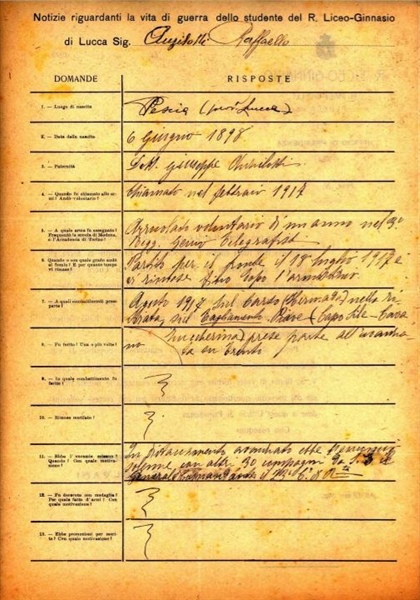 Notizie riguardanti la vita di guerra dello studente del R. Liceo-Ginnasio
di Lucca Sig. Angilotti Raffaello
DOMANDE
RISPOSTE
1. - Luogo di nascita
Pescia (prov Lucca)
2. - Data della nascita
6 Giugno 1898
3. - Paternità
Dott. Giuseppe
4. - Quando fu chiamato alle armi? Andò volontario?
chiamato nel febbraio 1917
5. - A quale arma fu assegnato?
Frequentò la scuola di Modena,
o l'Accademia di Torino?
Arruolato volontario di un anno nel 3°
Regg. Genio Telegrafisti
6. - Quando e con quale grado andò
al fronte? E per quanto tempo
vi rimase?
Partito per il fronte il luglio 1917 e
vi rimase fino dopo l'armistizio
7. - A quali combattimenti prese
parte?
Agosto 1917 sul Carso (Hermada) nella ri-
tirata, sul Tagliamento. Piave (Capo Sile-
prese parte all'avanzata
su Trento
8. - Fu ferito? Una o più volte?
no
9. - In quale combattimento fu
ferito?
10. - Rimase mutilato?
11. - Ebbe l'encomio solenne?
Quando? Con quale motivazione?
ebbe
solenne con altri 30 compagni da S. E. il
Generale
12. - Fu decorato con medaglia?
Per quale fatto d'armi? Con
quale motivazione?
13. - Ebbe promozioni per merito?
Con quale motivazione?